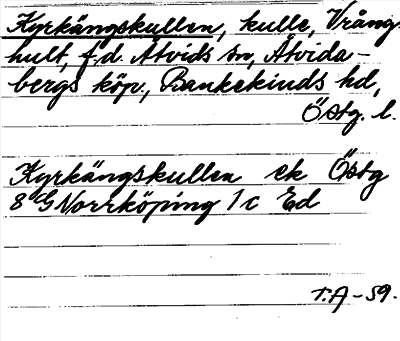 Kyrkängskullen, kulle, Vrång-
hult, f.d. Åtvids sn, Åtvida-
bergs köp., Bankekinds hd,
Östg. l.
Kyrkängskullen ek Östg
8 G Norrköping 1 c Ed
T.A-59.